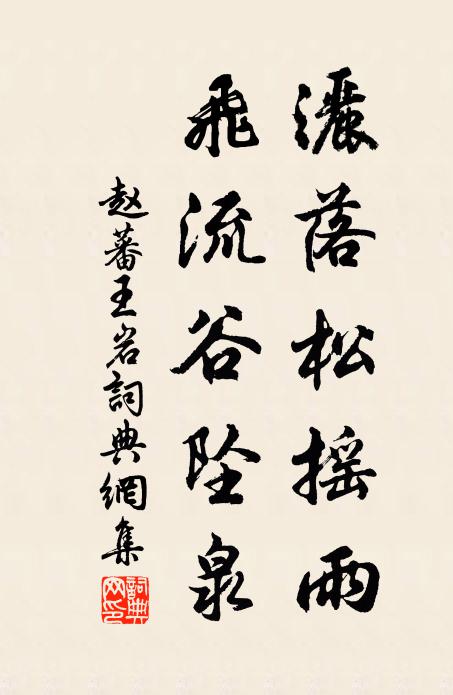 灑落松摇雨
飛流谷坠泉
赵蕃王岩詞典網集
詞典网印